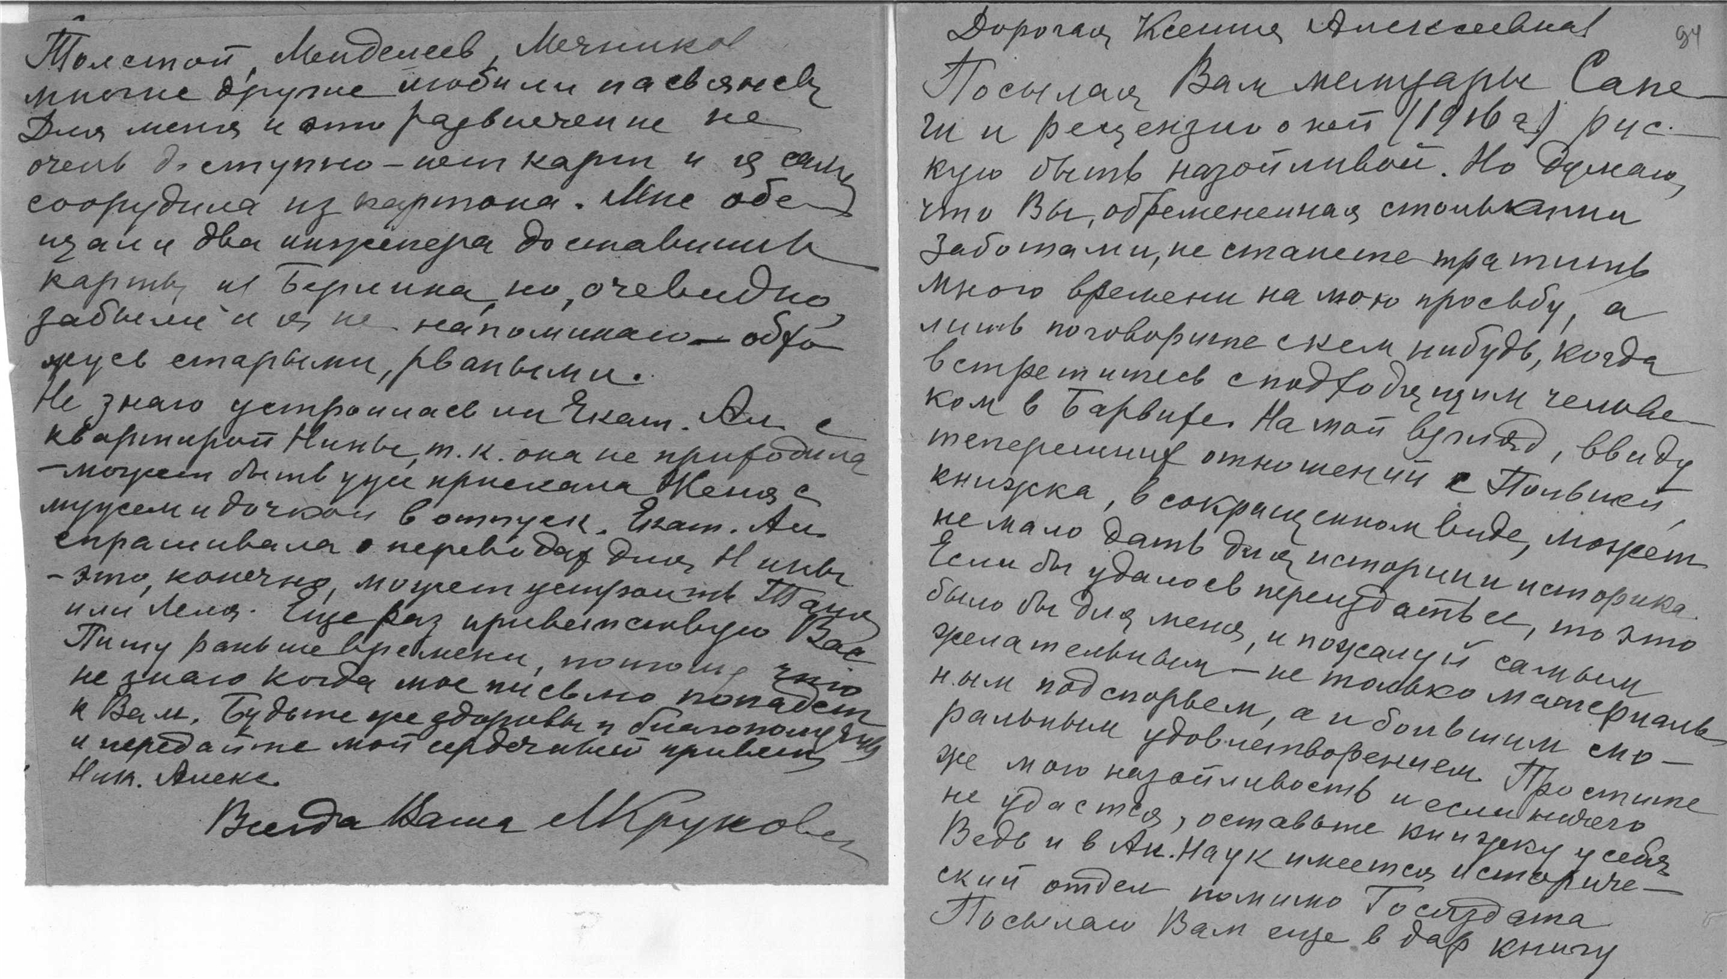 Толстой, Менделеев, Мечников
многие другие любили пасьянсы
Для меня и это развлечение не
очень доступно – нет карт и я сама
соорудила из картона. Мне обе-
щали два инженера доставить
карты из Берлина, но, очевидно,
забыли и я не напоминаю – обхо-
жусь старыми, рваными.
Не знаю устроилась ли Екат. Ал. с
квартирой Нины, т.к. она не приходила
– может быть уже приехала Женя с
мужем и дочкой в отпуск. Екат. Ал.
спрашивала о переводах для Нины
– это, конечно, может устроить Таня
или Леля. Еще раз приветствую Вас
Пишу раньше времени, потому что
не знаю когда мое письмо попадет
к Вам. Будьте же здоровы и благополучны
и передайте мой сердечный привет
Ник. Алекс.
Всегда Ваша МКрукове
94
Дорогая Ксения Алексеевна!
Посылая Вам мемуары Сапе-
ги и рецензию о ней (1916 г.) рис-
кую быть назойливой. Но думаю,
что Вы, обремененная столькими
заботами, не станете тратить
много времени на мою просьбу, а
лишь поговорите с кем нибудь, когда
встретитесь с подходящим челове-
ком в Барвихе. На мой взгляд, ввиду
теперешних отношений с Польшей,
книжка, в сокращенном виде, может
не мало дать для истории и историка.
Если бы удалось переиздать ее, то это
было бы для меня, и пожалуй самым
желательным – не только материаль-
ным подспорьем, а и большим мо-
ральным удовлетворением. Простите
же мою назойливость и если ничего
не удастся, оставьте книжку у себя
Ведь и в Ак. Наук имеется историче-
ский отдел помимо Госиздата
Посылаю Вам еще в дар книгу